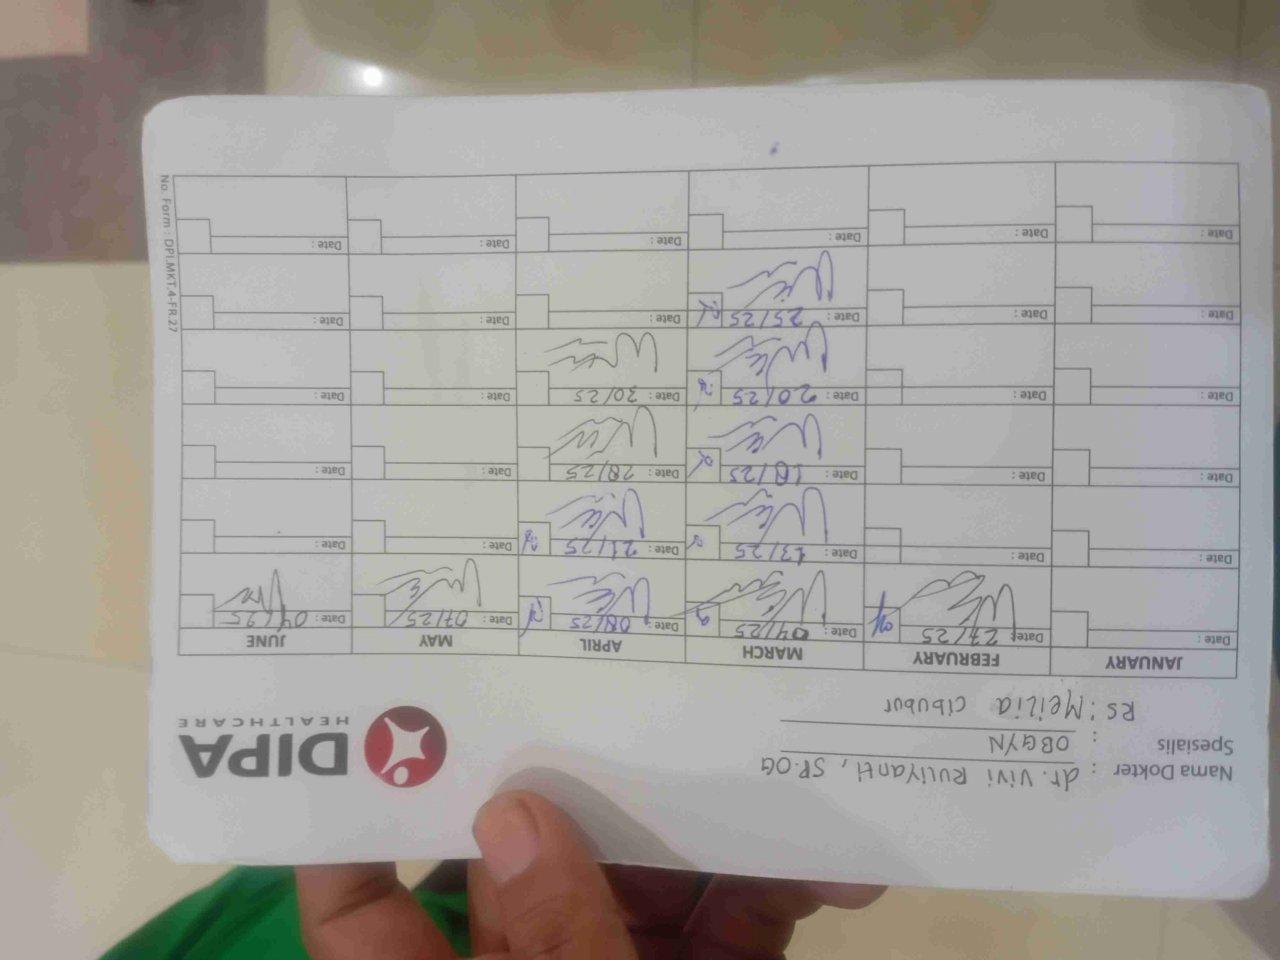 Nama Dokter : dr. Vivi Ruliyanti, SP.OG
Spesialis : OBGYN
RS : Meilia Cibubur
DIPA
HEALTHCARE
JANUARY FEBRUARY MARCH APRIL MAY JUNE
Date : Date : 27/25 Date : 04/25 Date : 08/25 Date : 07/25 Date : 04/25
Date : Date : Date : 13/25 Date : 21/25 Date : Date :
Date : Date : Date : 18/25 Date : 28/25 Date : Date :
Date : Date : Date : 20/25 Date : 30/25 Date : Date :
Date : Date : Date : 25/25 Date : Date : Date :
Date : Date : Date : Date : Date : Date :
No. Form : DPI.MKT.4-FR.27